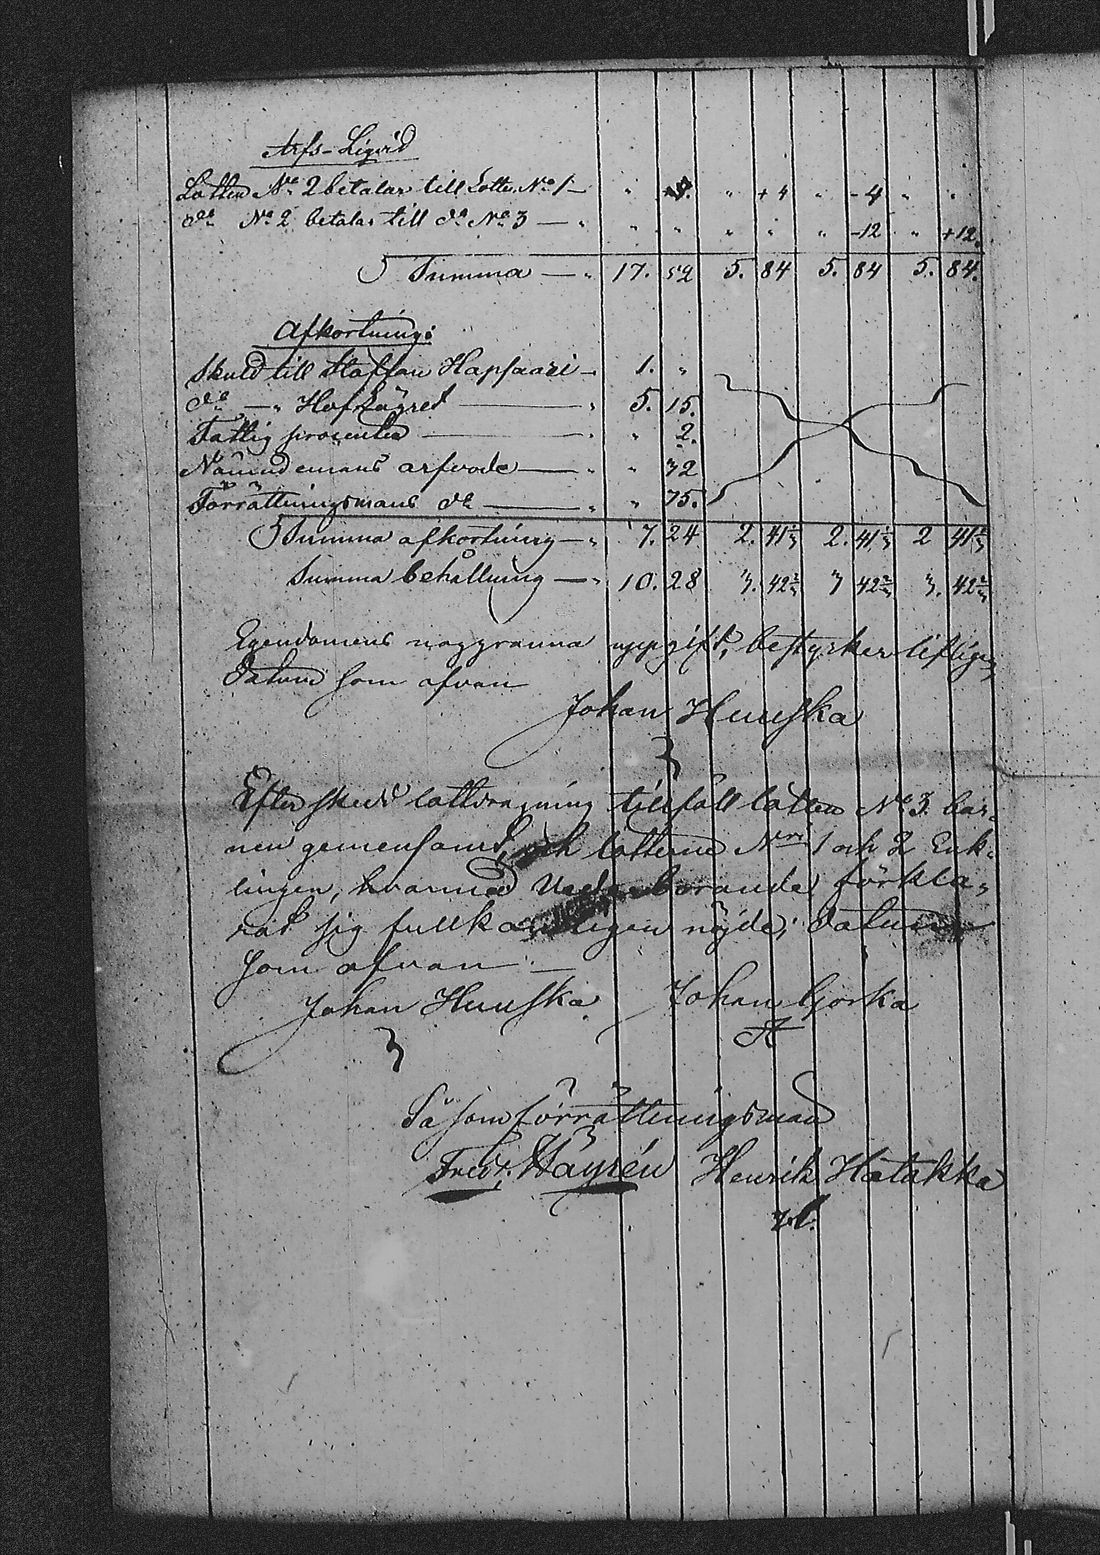 Arfs-Liqvid
Lotten No 2 betalar till Lotten No 1 — " " " + 4 " - 4 " "
do No 2 betalar till do No 3 — " " " " " " -12 " +12.
Summa — " 17. 52 5. 84 5. 84 5. 84.
Afkortning:
Skuld till Staffan Hapsaari — 1. "
do — " Hof Lägret — " 5. 15.
Fattig procenten — " " 2.
Nämndemans arfvode — " " 32
Förrättningsmans do — " " 75.
Summa afkortning — " 7. 24 2. 41 1/3 2. 41 1/3 2 41 1/3
Summa behållning — " 10. 28 3. 42 2/3 3 42 2/3 3. 42 2/3
Egendomens noggranna uppgift, bestyrker lifligen,
Datum som ofvan
Johan Huuska
Efter skedd lottdragning tillföll lotten No 3. bar-
nen gemensamt, och lotterne Nris 1 och 2 Enk-
lingen, hvarmed förkla-
rat sig fullkomligen nöjde; Datum
som ofvan —
Johan Huuska Johan Gorka
Såsom förrättningsman
Fredr. Häyrén Henrik Hatakka